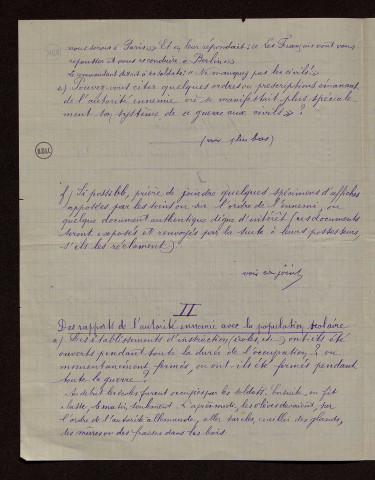 nous serons à Paris. » Et on leur répondait: « Les Français vont vous
repousser et vous reconduire à Berlin »
Le commandant disait à ses soldats: « Ne manquez pas les civils! »
e) Pouvez-vous citer quelques ordres ou prescriptions émanant
de l'autorité ennemie où se manifestait plus spéciale-
ment son système de « guerre aux civils » ?
(voir plus bas)
f) Si possible, prière de joindre quelques spécimens d'affiches
apposées par les soins ou sur l'ordre de l'ennemi, ou
quelque document authentique digne d'intérêt (ces documents
seront exposés et renvoyés par la suite à leurs possesseurs,
s'ils les réclament)
voir ci-joint
II
Des rapports de l'autorité ennemie avec la population scolaire
a) Les établissements d'instruction (écoles, etc...) ont-ils été
ouverts pendant toute la durée de l'occupation? ou
momentanément fermés, ou ont-ils été fermés pendant
toute la guerre?
Au début les écoles furent occupées par les soldats. Ensuite, on fit
classe le matin seulement. L'après-midi, les élèves devaient, par
l'ordre de l'autorité allemande, aller cueillir des glands,
les mûres ou des faines dans les bois.